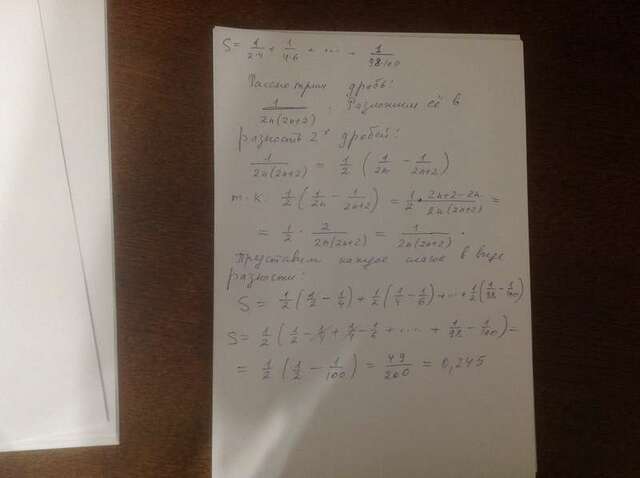 S = 1/(2·4) + 1/(4·6) + ... - 1/(98·100)
Рассмотрим дробь:
1/(2n(2n+2)). Разложим её в
разность 2х дробей:
1/(2n(2n+2)) = 1/2 (1/2n - 1/(2n+2))
т.к. 1/2 (1/2n - 1/(2n+2)) = 1/2 · (2n+2-2n)/(2n(2n+2)) =
= 1/2 · 2/(2n(2n+2)) = 1/(2n(2n+2)).
Представим каждое слагое в виде
разности:
S = 1/2 (1/2 - 1/4) + 1/2 (1/4 - 1/6) + ... + 1/2 (1/98 - 1/100)
S = 1/2 (1/2 - 1/4 + 1/4 - 1/6 + .... + 1/98 - 1/100) =
= 1/2 (1/2 - 1/100) = 49/200 = 0,245